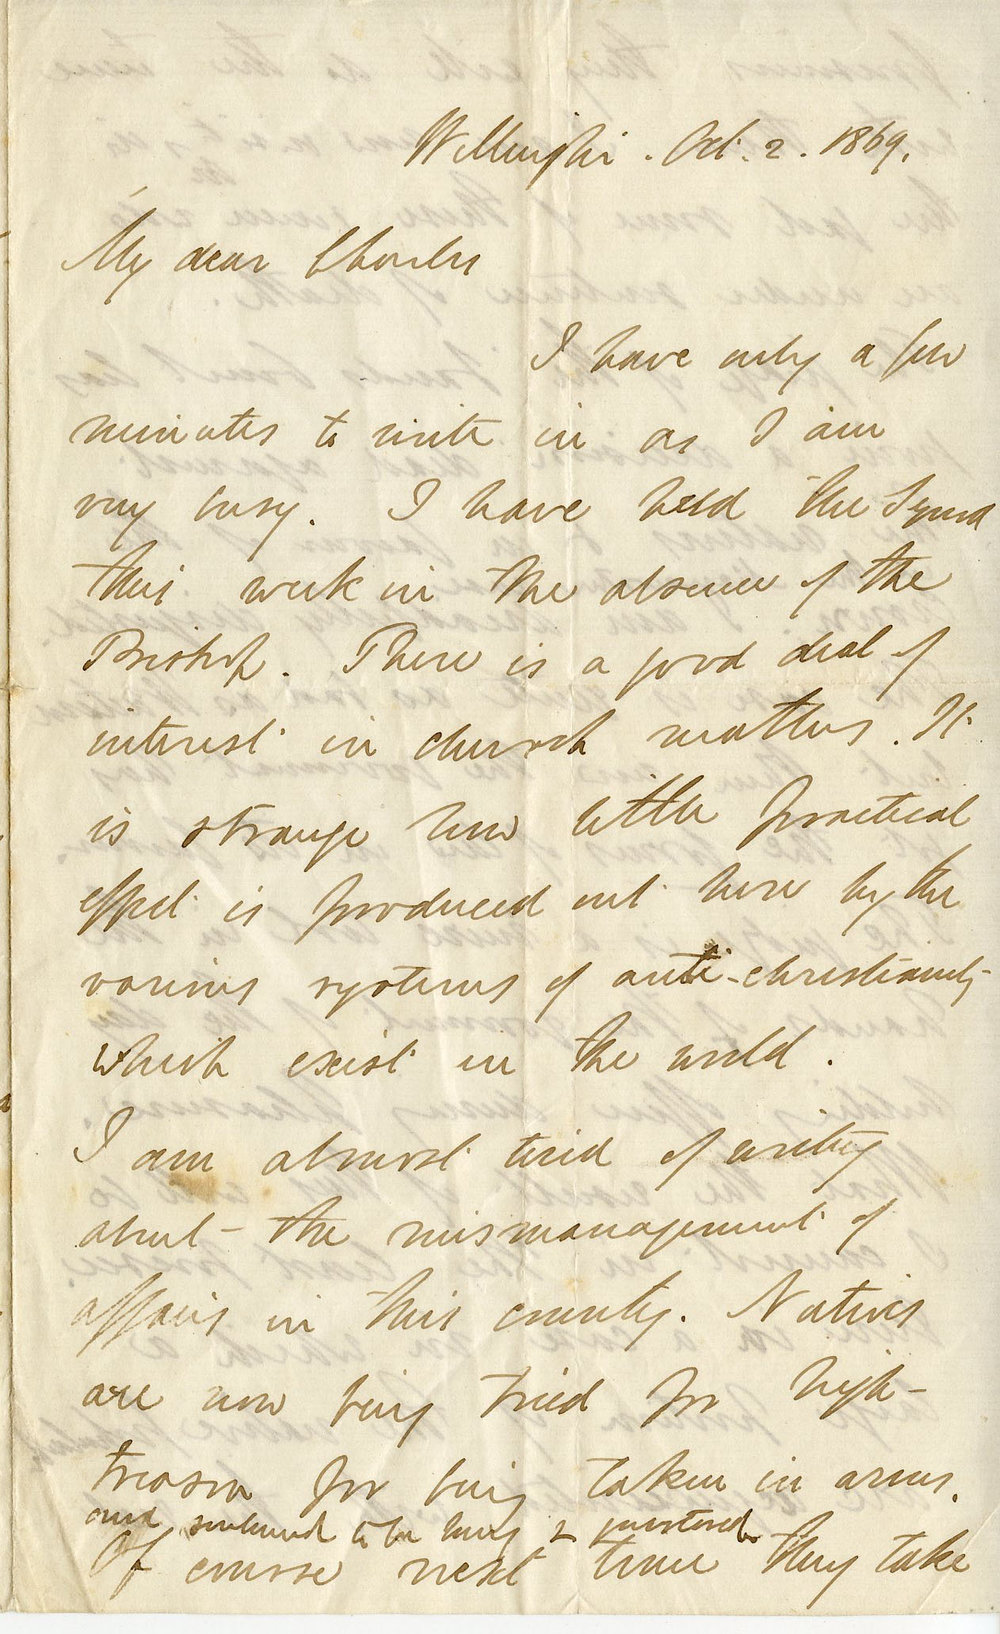 Wellington. Oct. 2. 1869.
My dear Charles
I have only a few
minutes to write in as I am
very busy. I have held the Synod
this week in the absence of the
Bishop. There is a good deal of
interest in church matters. It
is strange how little practical
effect is produced out here by the
various systems of anti-christianity
which exist in the world.
I am almost tired of writing
about the mismanagement of
affairs in this country. Natives
are now being tried for high-
treason for being taken in arms.
and sentenced to be hung & quartered
Of course next time they take